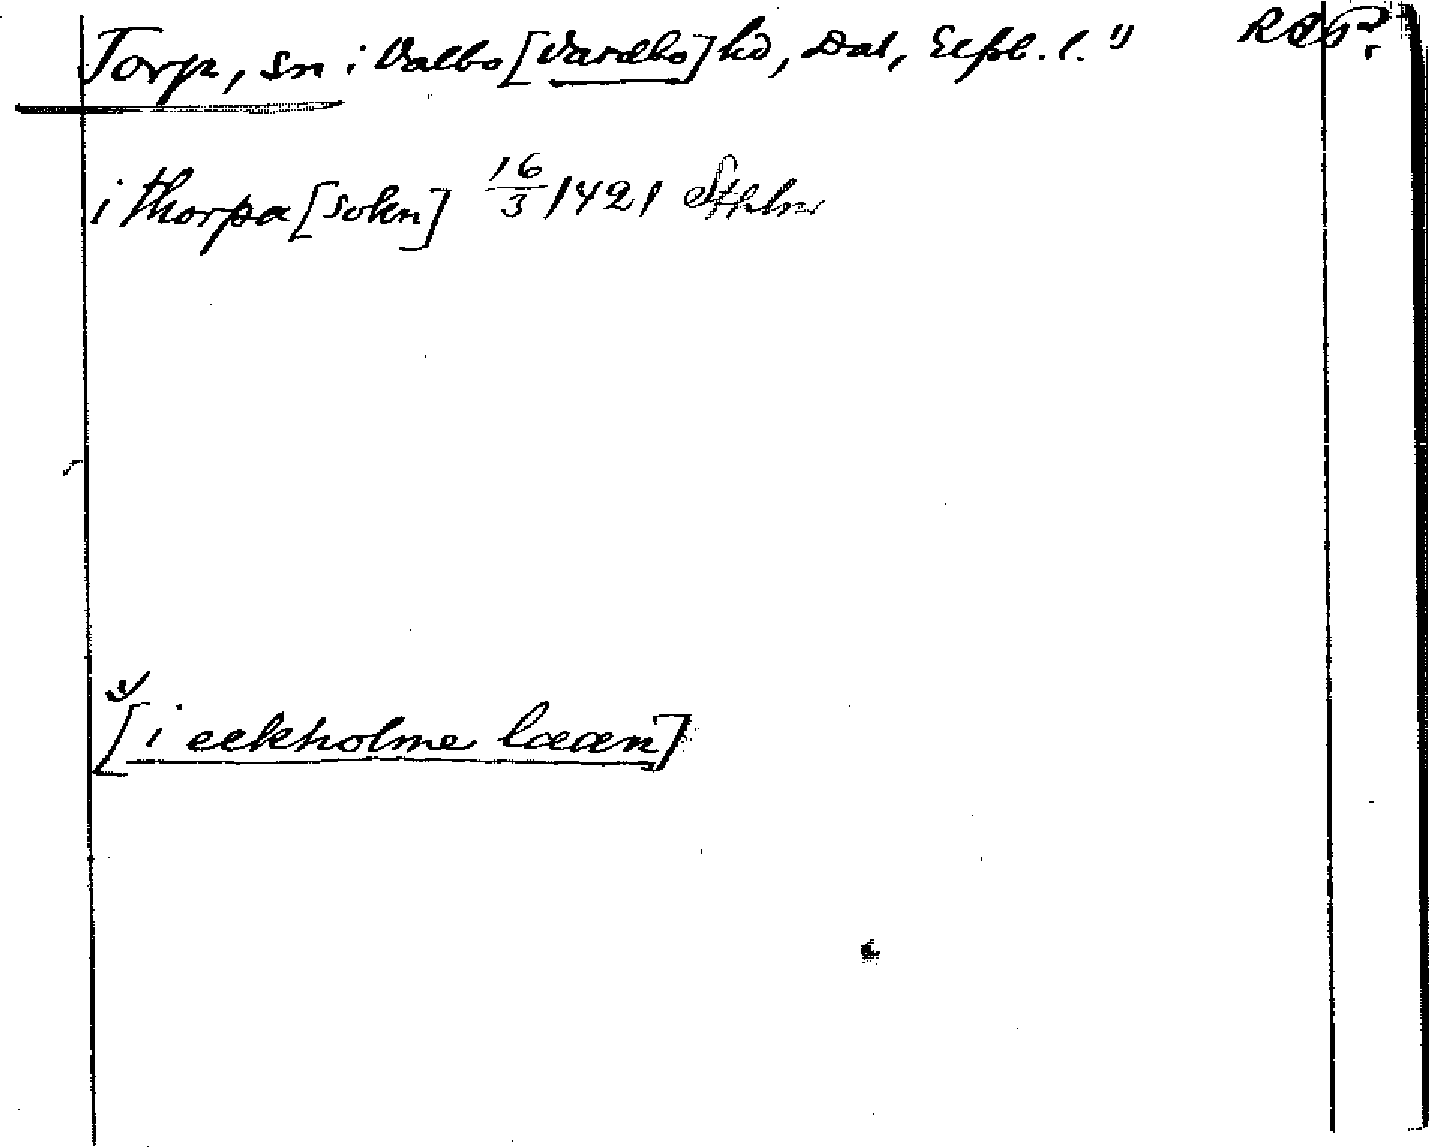 Torp, sn i Valbo [Vardbo] hd, Dal, Elfsb. l. "
i thorpa [sokn] 16/3 1421 Sthlm
[i eekholme lææn]